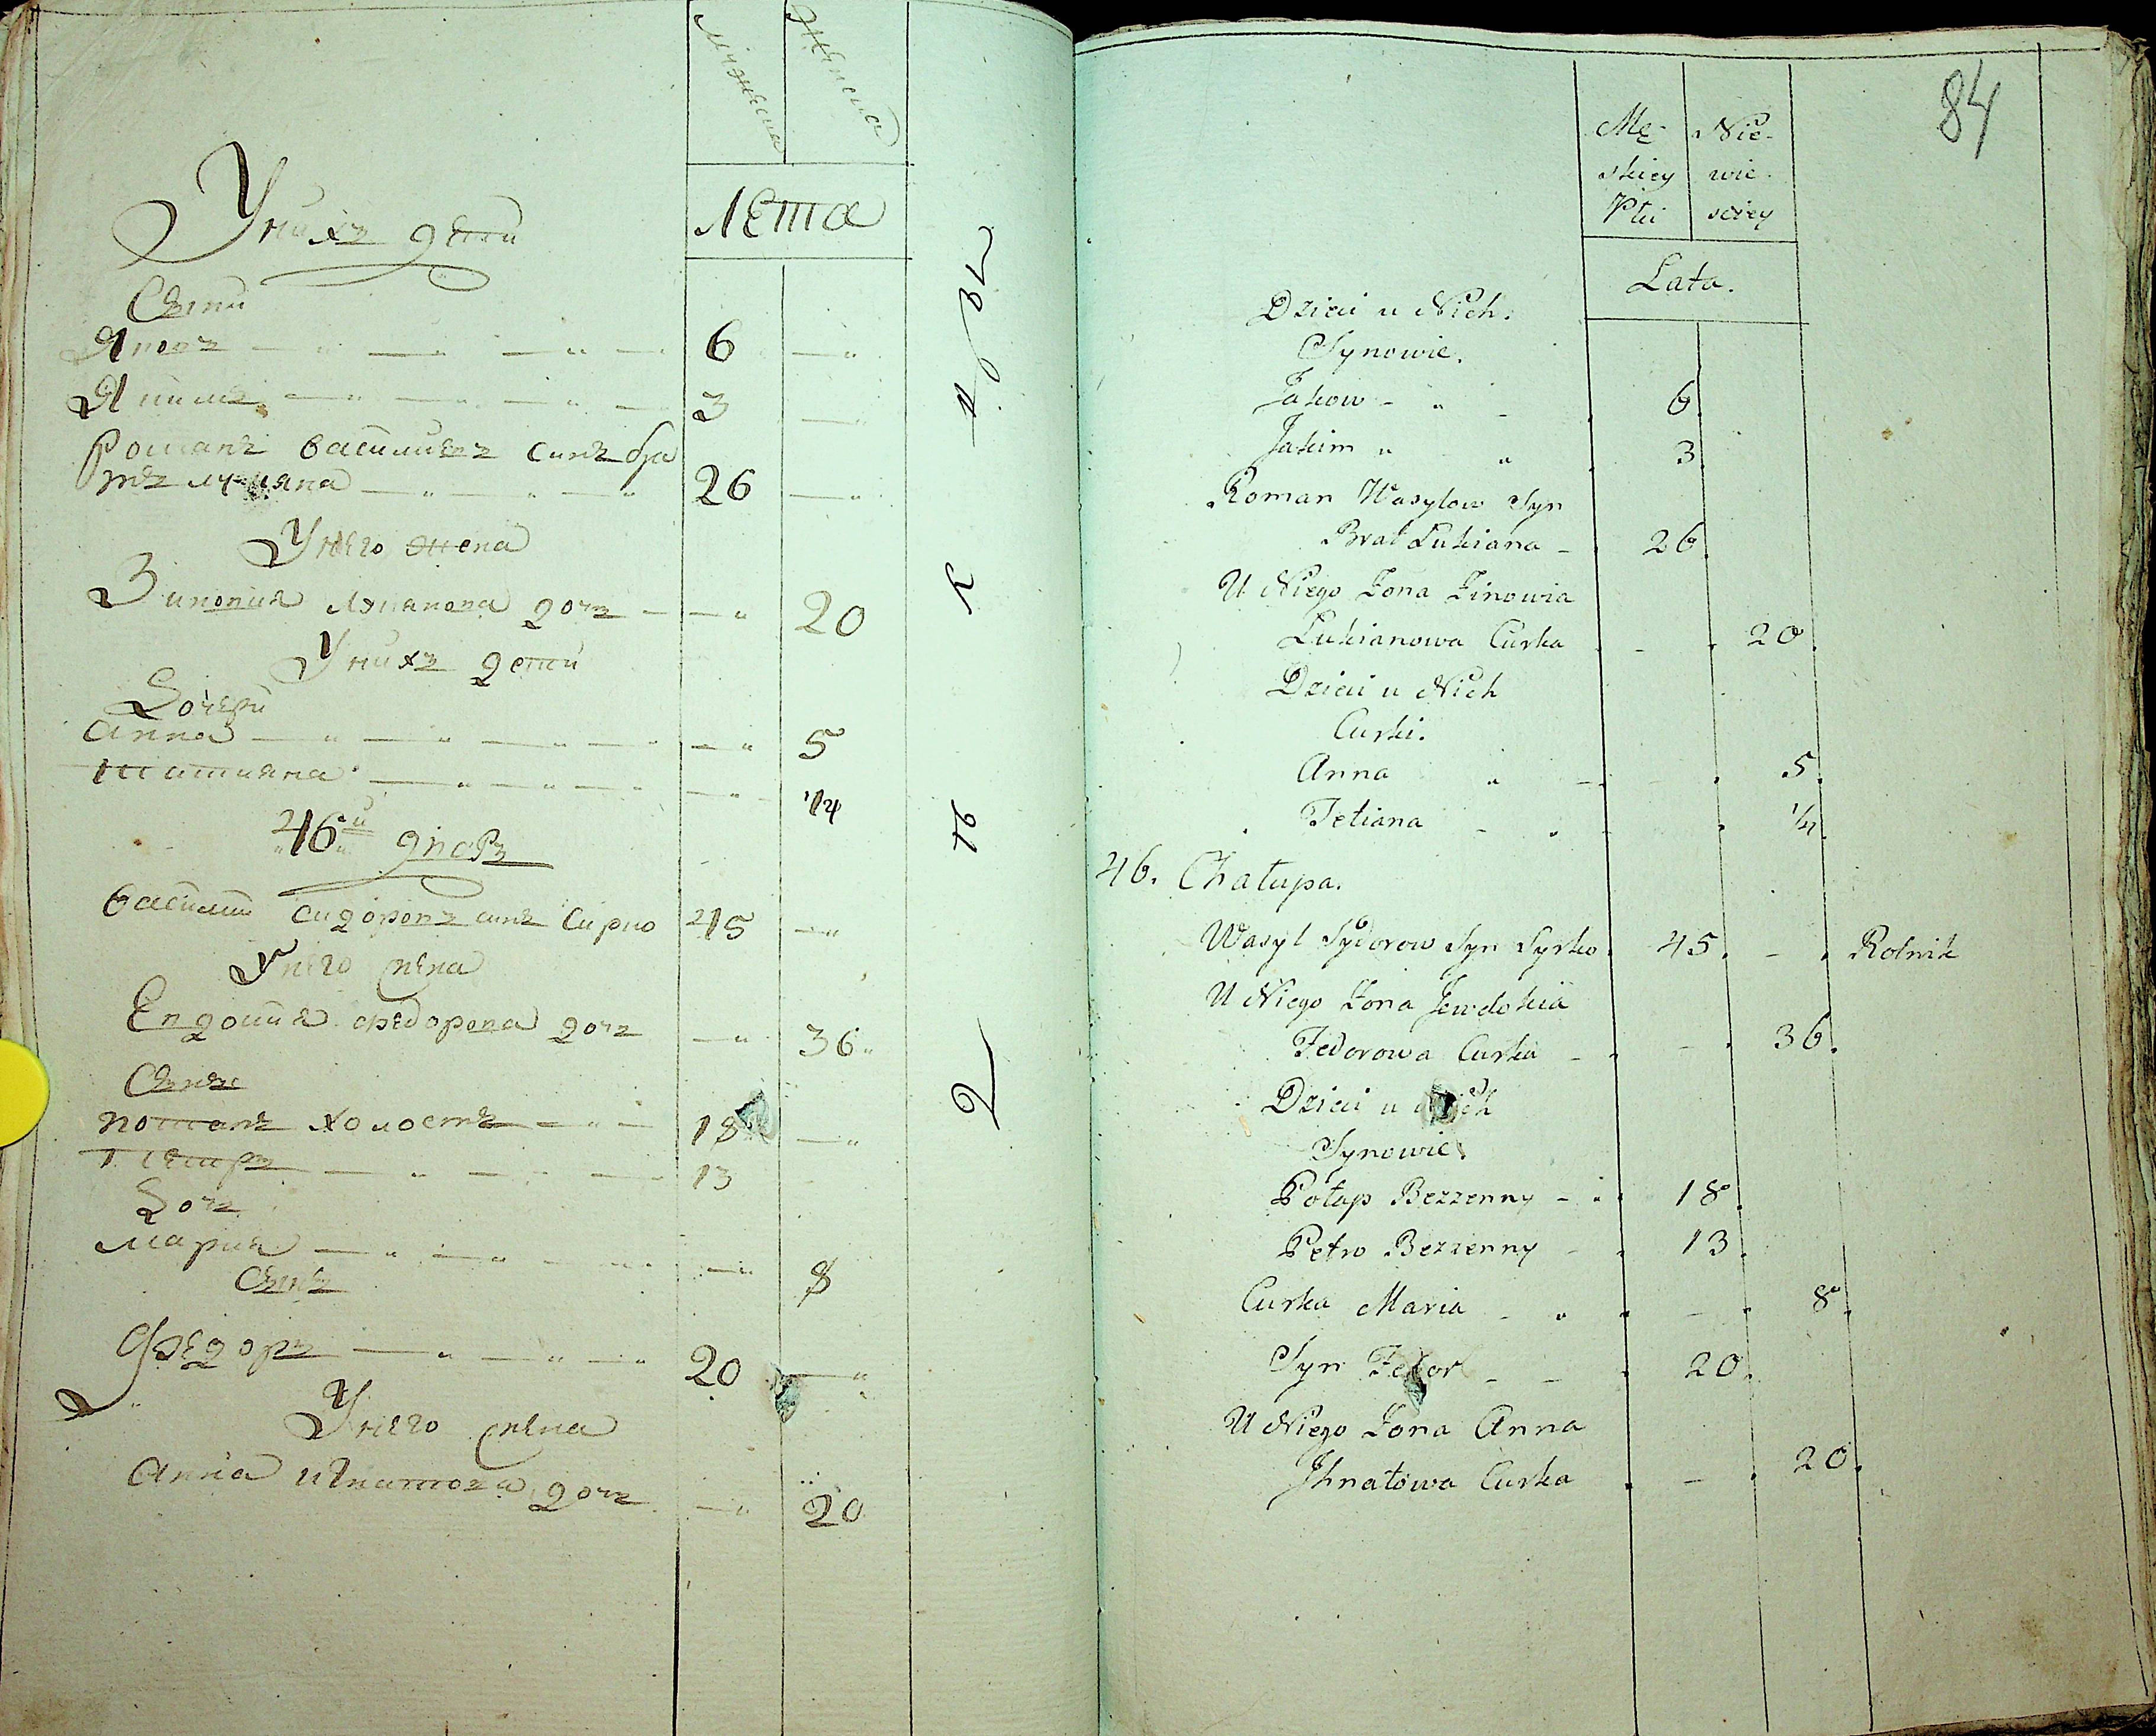 мужеска женска
Лета
У нихъ дети
Сыни
Яковъ 6
Якимъ 3
Романъ василиевъ синъ бра
тъ лукияна 26
У него жена
Зиновия лукянова дочъ 20
У нихъ дети
Дочери
Анна 5
татияна 1/4
46й дворъ
василий сидоровъ синъ Сирко 45
У него жена
Евдокия федорова дочъ 36
Сыны
потапъ холостъ 18
петръ 13
Дочъ
мария 8
Сынъ
Федоръ 20
У него жена
Анна игнатова дочъ 20
84
Mę- Nie-
skiey wie-
Płci sciey
Lata.
Dzieci u Nich.
Synowie.
Jakow 6.
Jakim 3.
Roman Wasylow Syn
Brat Łukiana 26.
U Niego Żona Zinowia
Łukianowa Curka 20.
Dzieci u Nich
Curki.
Anna 5.
Tetiana 1/4.
46. Chałupa.
Wasyl Sydorow Syn Syrko. 45. Rolnik
U Niego Żona Jewdokia
Fedorowa Curka 36.
Dzieci u Nich
Synowie.
Potap Bezzenny 18.
Petro Bezzenny 13.
Curka Maria 8.
Syn Fedor 20.
U Niego Żona Anna
Ihnatowa Curka 20.